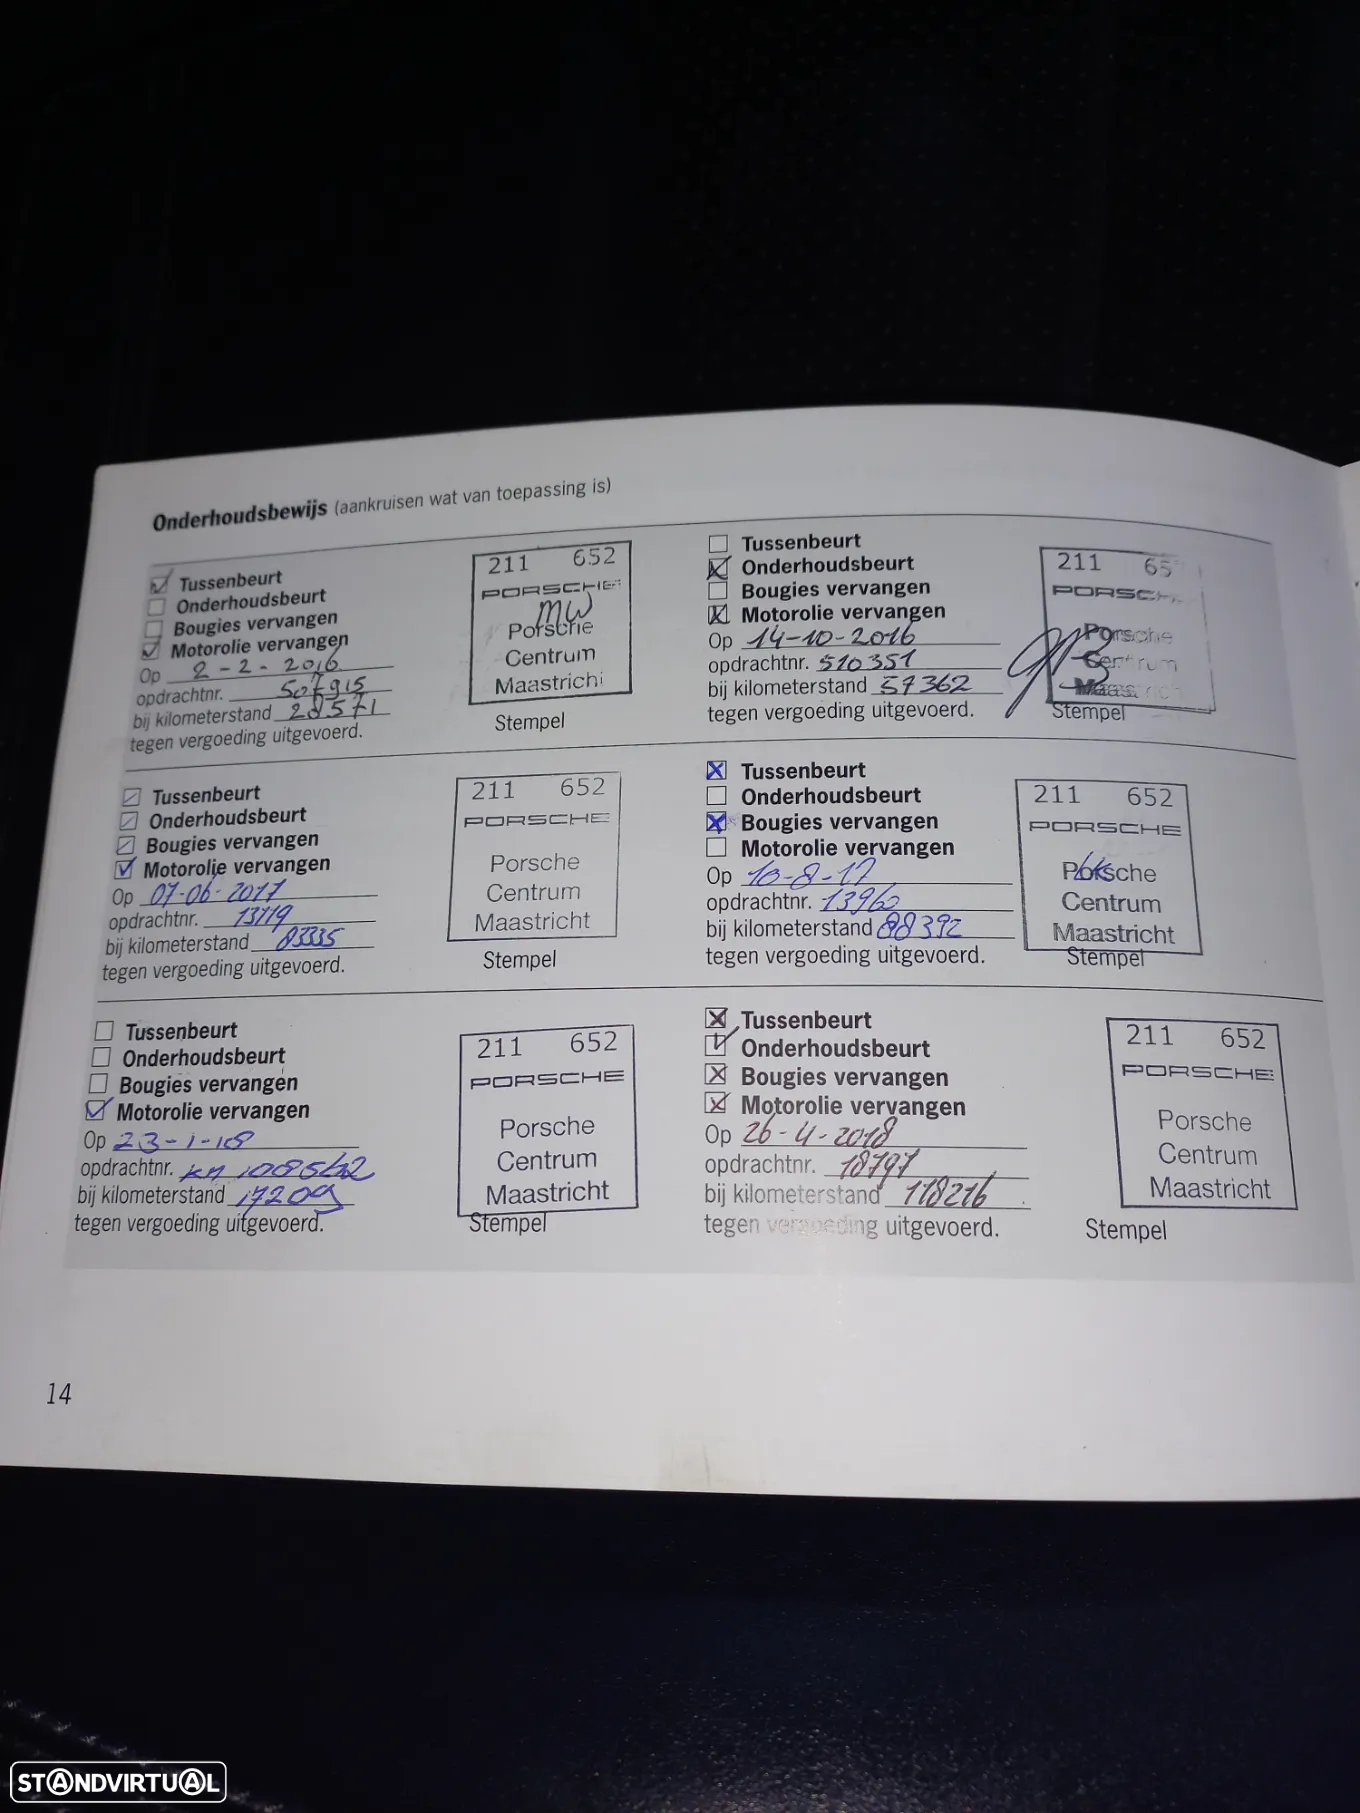 Onderhoudsbewijs (aankruisen wat van toepassing is)
Tussenbeurt
Onderhoudsbeurt
Bougies vervangen
Motorolie vervangen
Op 2-2-2016
opdrachtnr. 507915
bij kilometerstand 28571
tegen vergoeding uitgevoerd.
211 652
PORSCHE
MW
Porsche
Centrum
Maastricht
Stempel
Tussenbeurt
Onderhoudsbeurt
Bougies vervangen
Motorolie vervangen
Op 14-10-2016
opdrachtnr. 510351
bij kilometerstand 57362
tegen vergoeding uitgevoerd.
211 65
PORSCHE
Porsche
Centrum
Maastricht
Stempel
Tussenbeurt
Onderhoudsbeurt
Bougies vervangen
Motorolie vervangen
Op 07-06-2017
opdrachtnr. 13119
bij kilometerstand 83335
tegen vergoeding uitgevoerd.
211 652
PORSCHE
Porsche
Centrum
Maastricht
Stempel
Tussenbeurt
Onderhoudsbeurt
Bougies vervangen
Motorolie vervangen
Op 10-8-17
opdrachtnr. 13960
bij kilometerstand 88392
tegen vergoeding uitgevoerd.
211 652
PORSCHE
Porsche
Centrum
Maastricht
Stempel
Tussenbeurt
Onderhoudsbeurt
Bougies vervangen
Motorolie vervangen
Op 23-1-18
opdrachtnr. KM 108562
bij kilometerstand 17209
tegen vergoeding uitgevoerd.
211 652
PORSCHE
Porsche
Centrum
Maastricht
Stempel
Tussenbeurt
Onderhoudsbeurt
Bougies vervangen
Motorolie vervangen
Op 26-4-2018
opdrachtnr. 18797
bij kilometerstand 118216
tegen vergoeding uitgevoerd.
211 652
PORSCHE
Porsche
Centrum
Maastricht
Stempel
14
STANDVIRTUAL